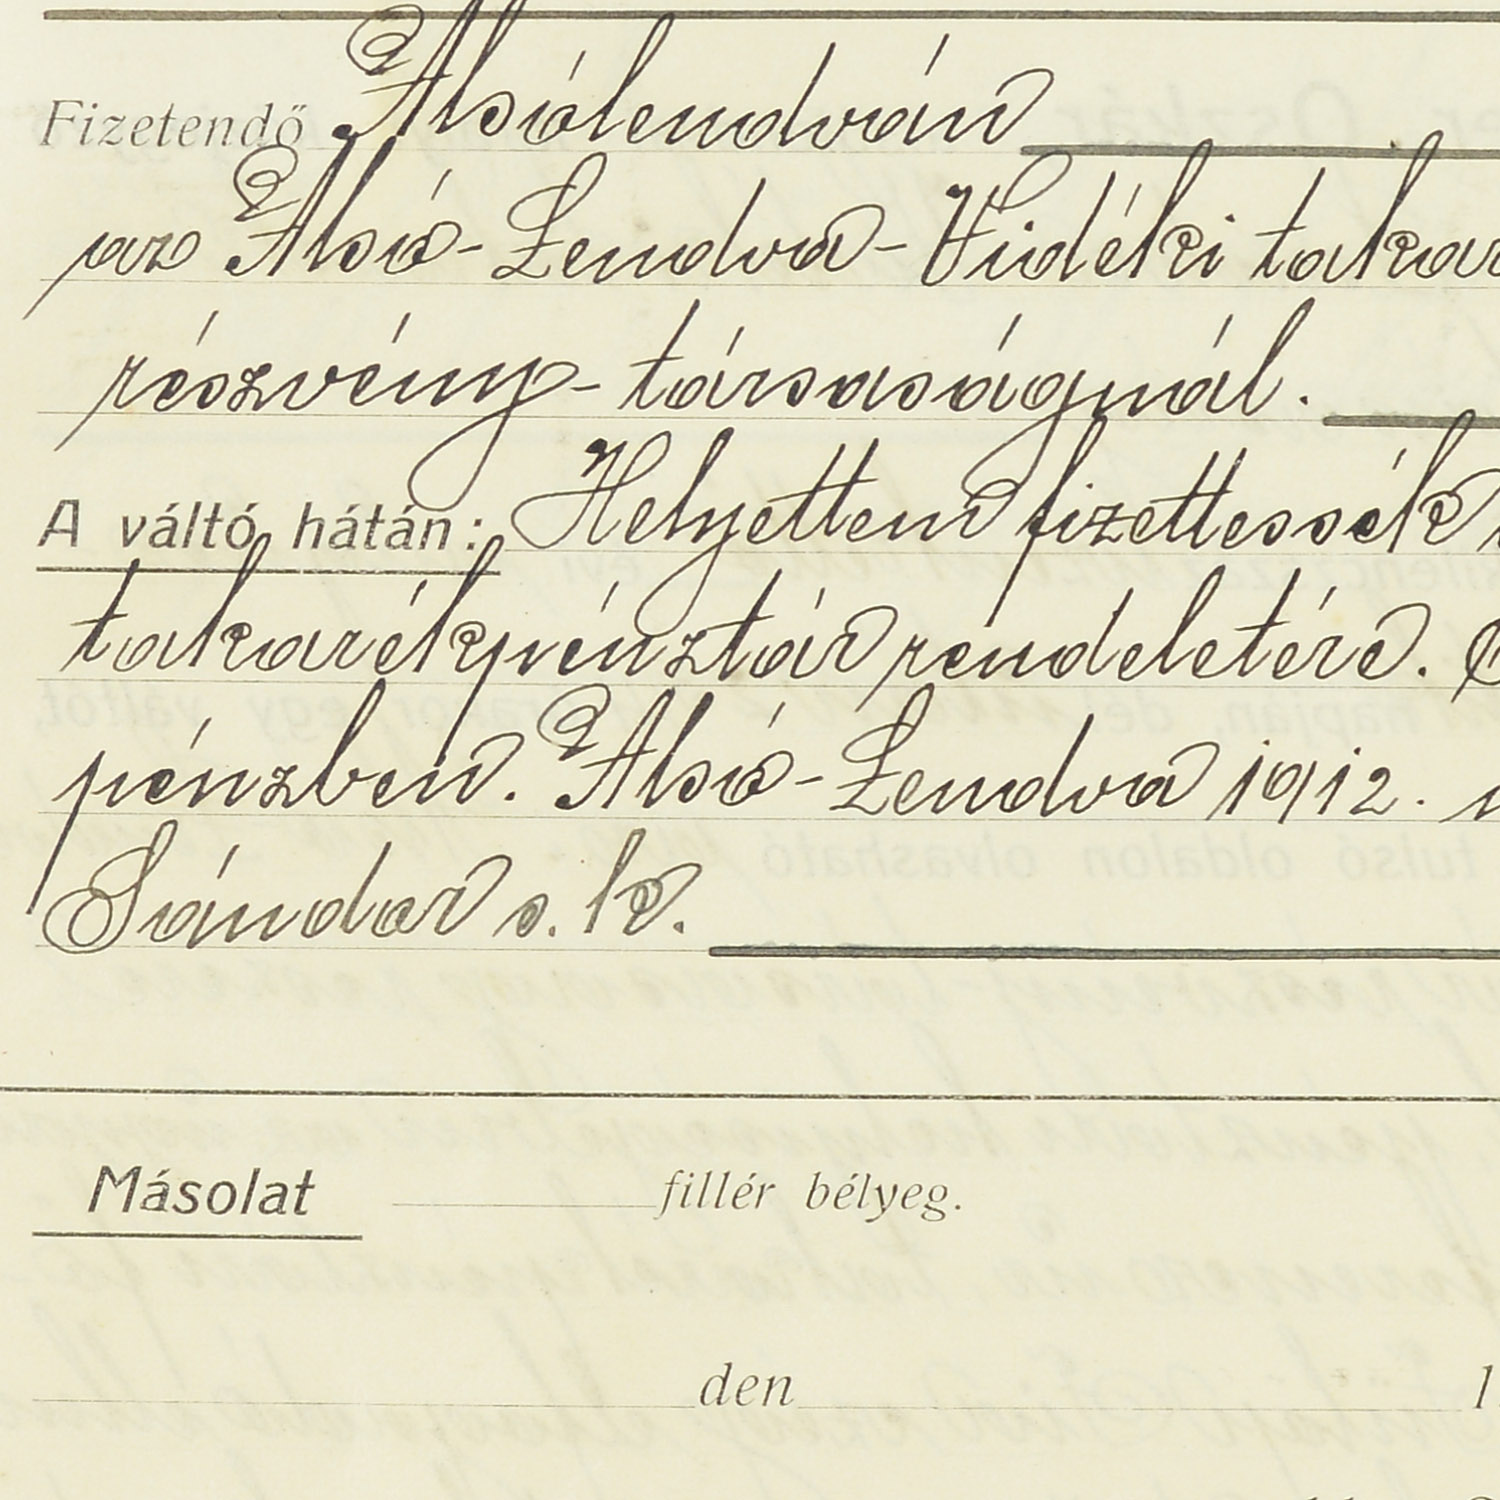 Fizetendő Alsólendván
az Alsó-Lendva-Vidéki takar
részvény-társaságnál.
A váltó hátán: Helyettem fizettessék
takarékpénztár rendeletére.
pénzben. Alsó-Lendva 1912.
Sándor s. k.
Másolat fillér bélyeg.
den 1